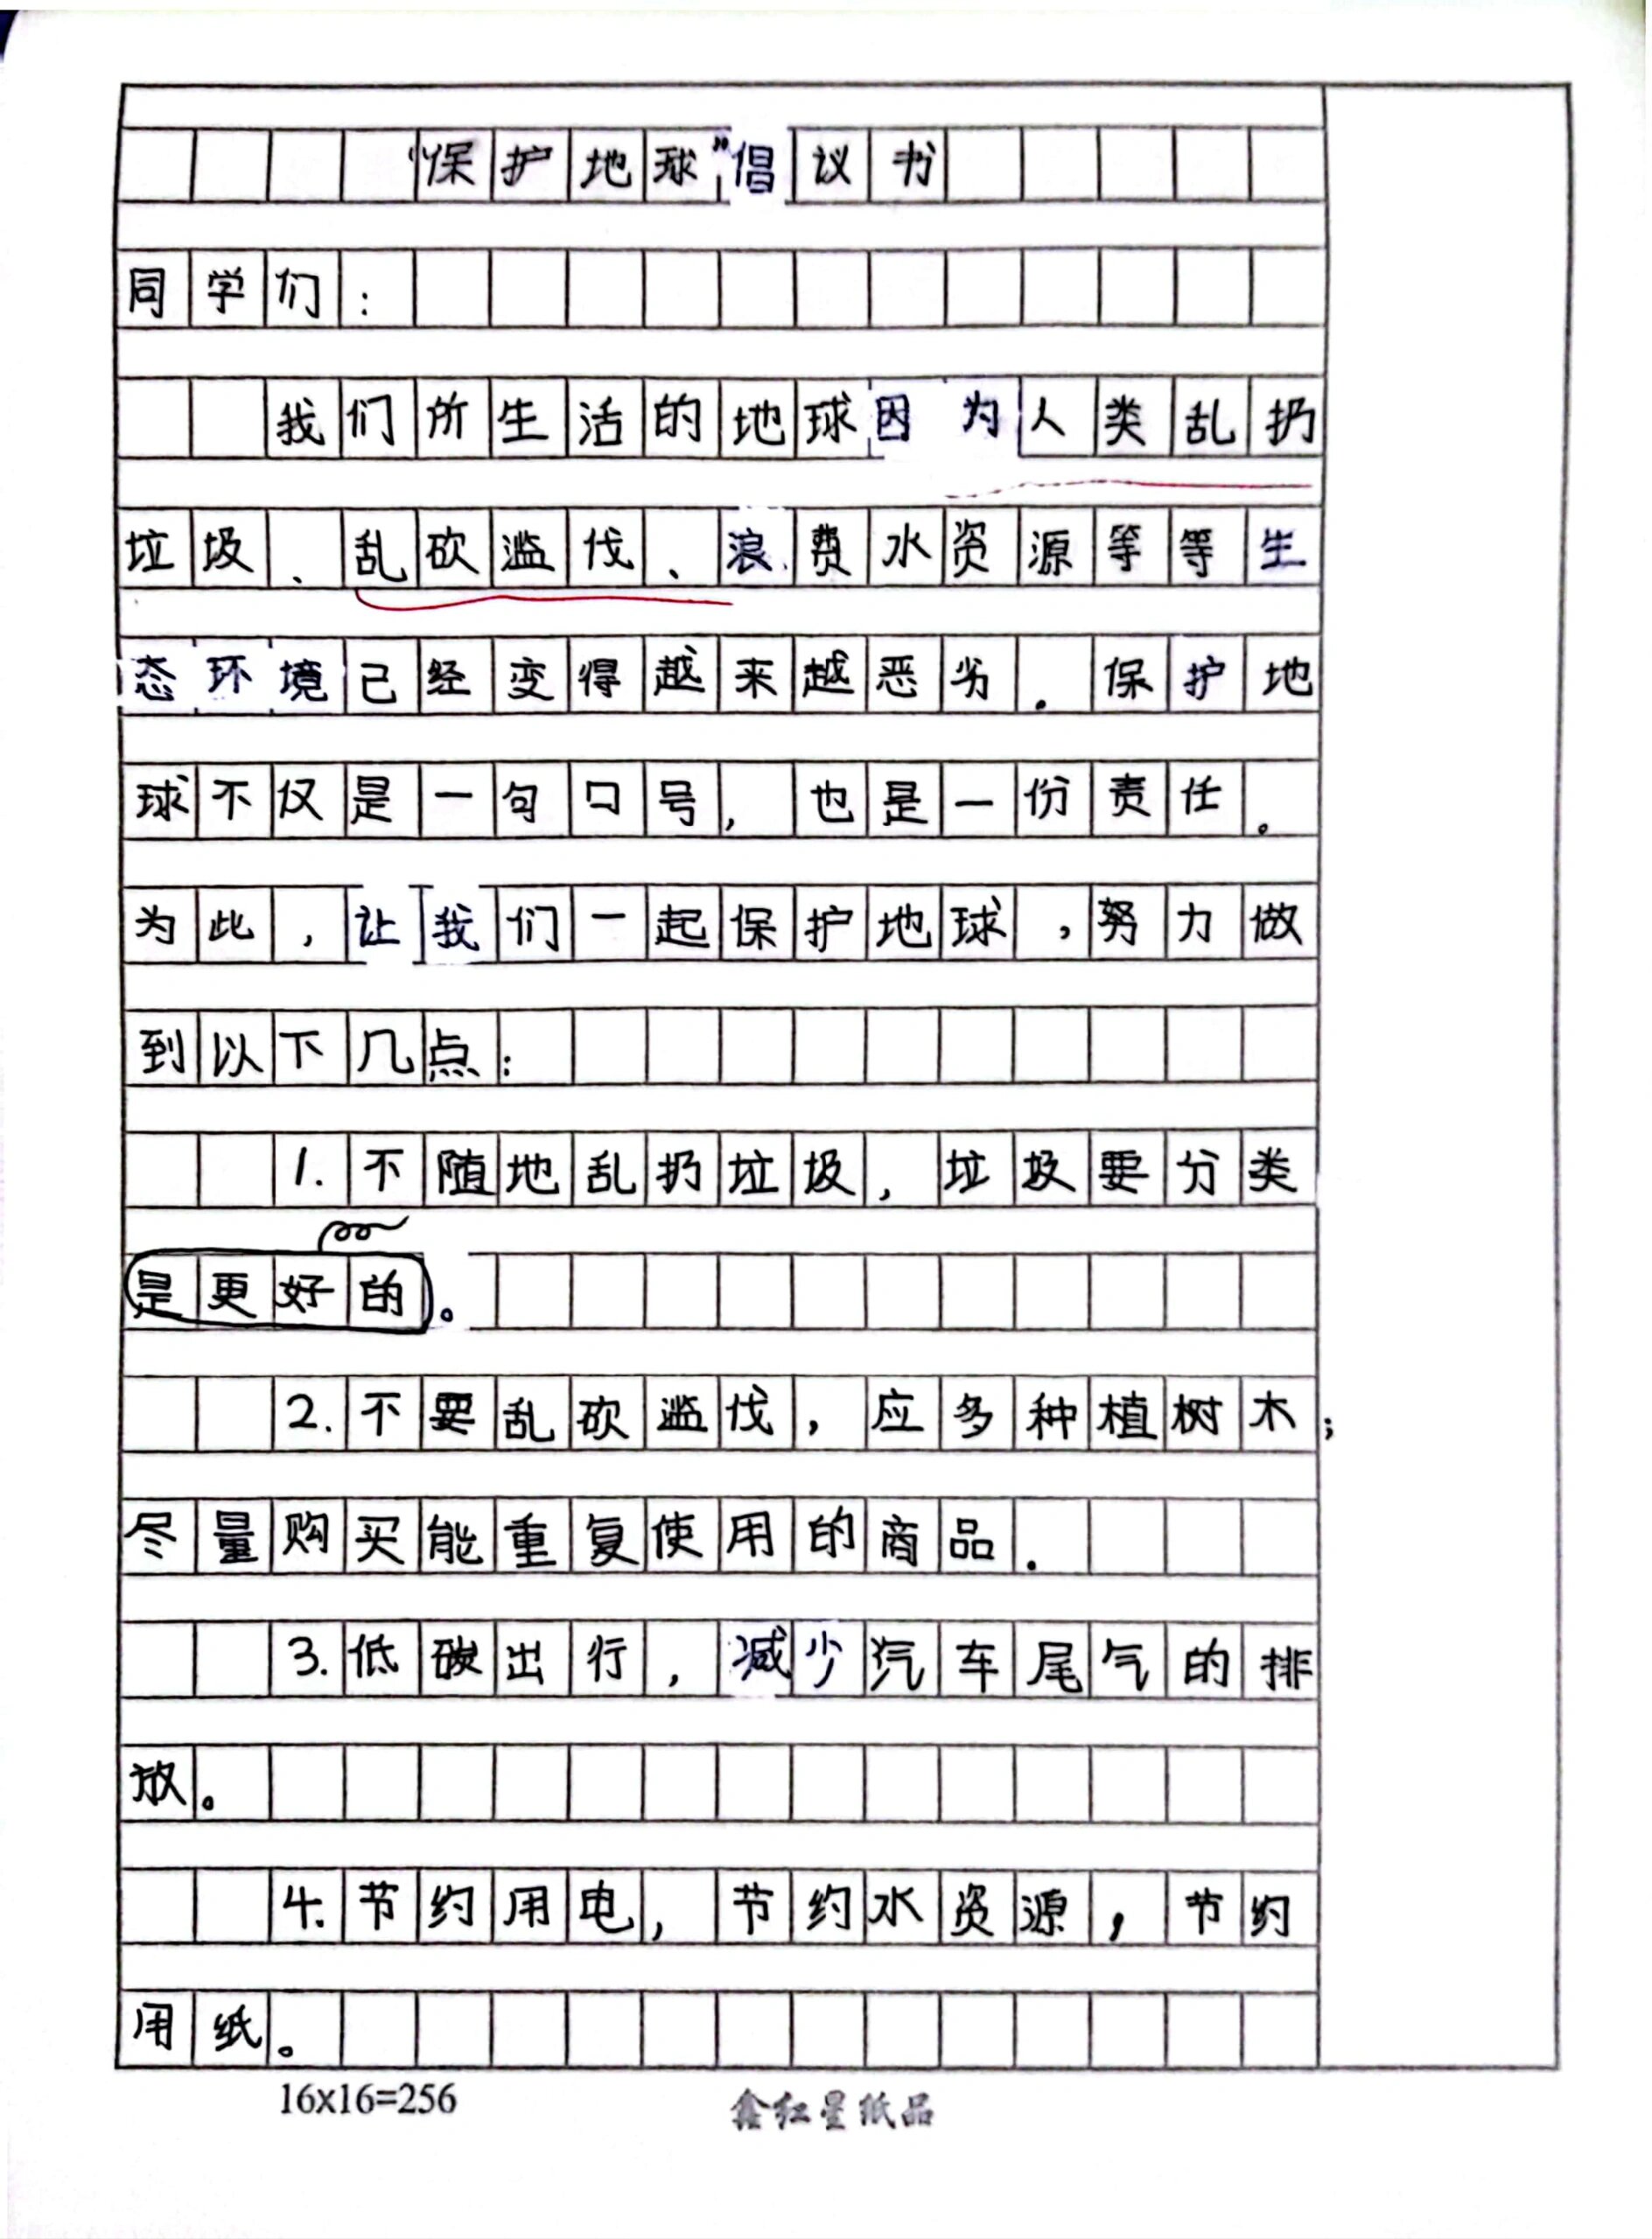 “保护地球”倡议书
同学们：
我们所生活的地球因为人类乱扔
垃圾、乱砍滥伐、浪费水资源等等生
态环境已经变得越来越恶劣。保护地
球不仅是一句口号，也是一份责任。
为此，让我们一起保护地球，努力做
到以下几点：
1.不随地乱扔垃圾，垃圾要分类
是更好的。
2.不要乱砍滥伐，应多种植树木；
尽量购买能重复使用的商品.
3.低碳出行，减少汽车尾气的排
放。
4.节约用电，节约水资源，节约
用纸。
16x16=256 鑫红星纸品